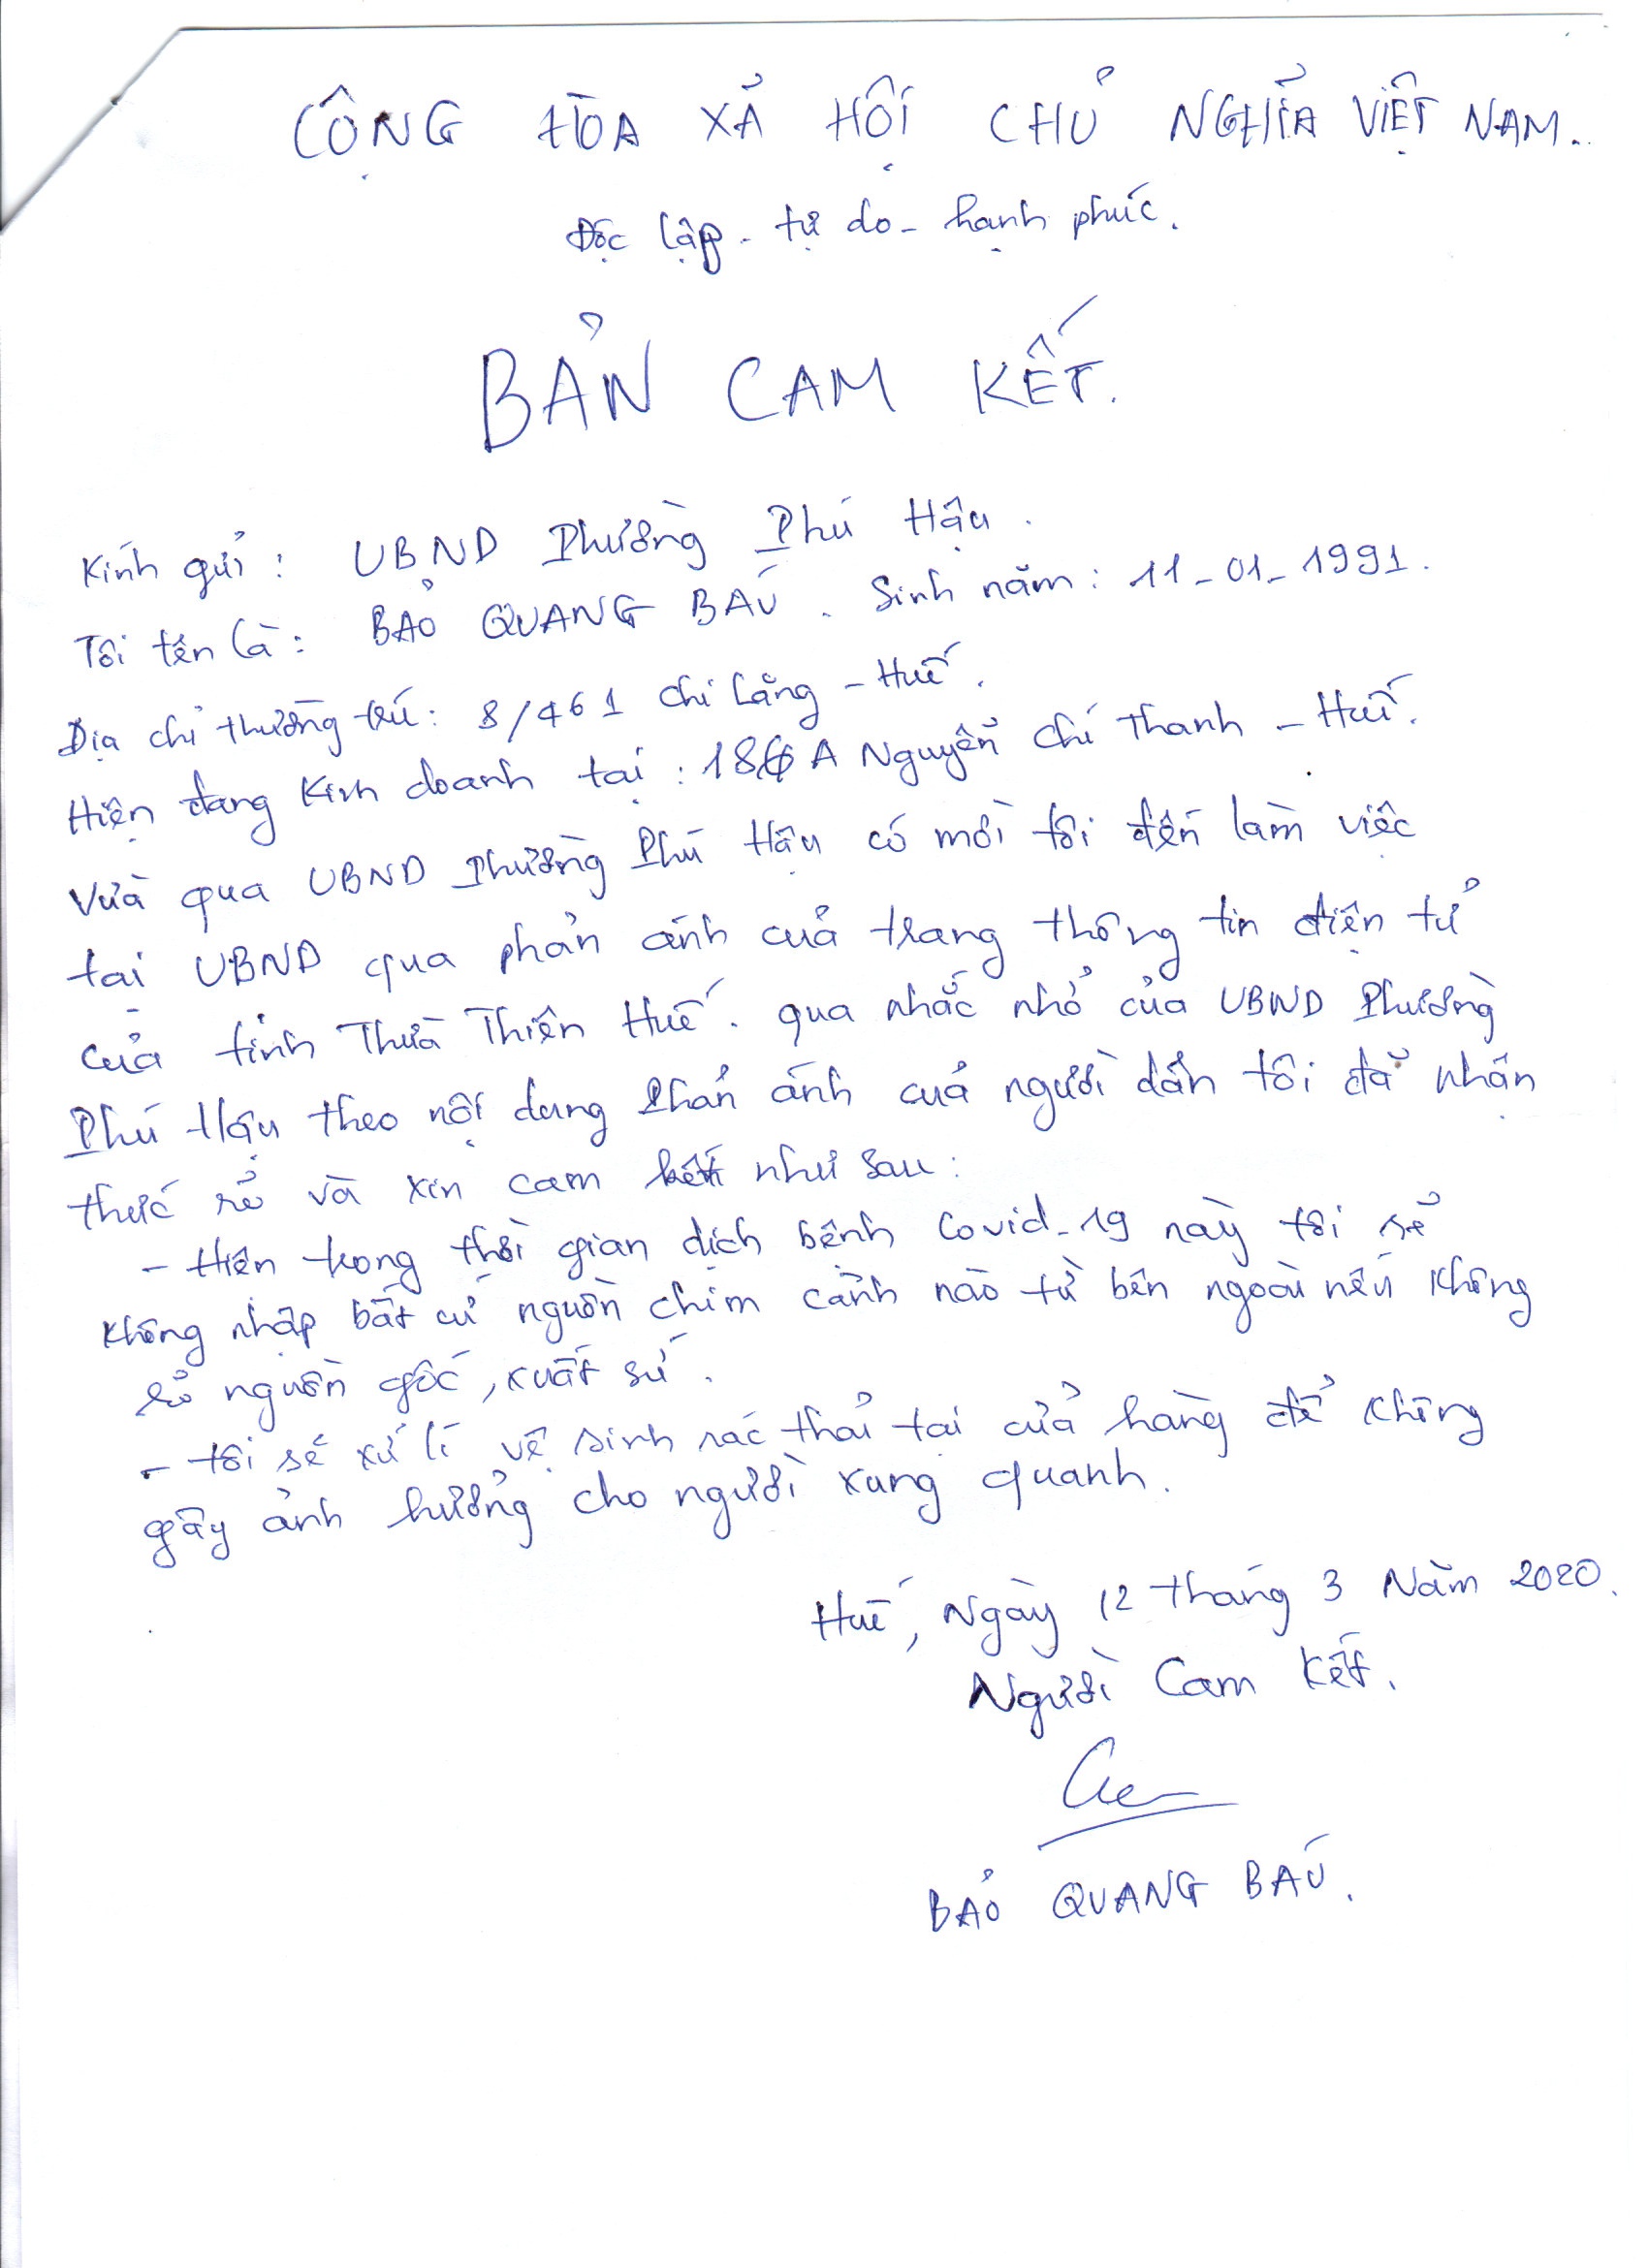 CỘNG HÒA XÃ HỘI CHỦ NGHĨA VIỆT NAM.
Độc lập - tự do - hạnh phúc.
BẢN CAM KẾT.
Kính gửi : UBND Phường Phú Hậu.
Tôi tên là : BẢO QUANG BÁU. Sinh năm : 11-01-1991.
Địa chỉ thường trú : 8/461 Chi Lăng - Huế.
Hiện đang kinh doanh tại : A Nguyễn Chí Thanh - Huế.
Vừa qua UBND Phường Phú Hậu có mời tôi đến làm việc
tại UBND qua phản ánh của trang thông tin điện tử
của tỉnh Thừa Thiên Huế. qua nhắc nhở của UBND Phường
Phú Hậu theo nội dung phản ánh của người dân tôi đã nhận
thức rỏ và xin cam kết như sau :
- Hiện trong thời gian dịch bệnh Covid-19 này tôi sẻ
không nhập bất cứ nguồn chim cảnh nào từ bên ngoài nếu không
rỏ nguồn gốc, xuất sứ.
- tôi sẻ xử lí vệ sinh rác thải tại cửa hàng để không
gây ảnh hưởng cho người xung quanh.
Huế, Ngày 12 tháng 3 Năm 2020.
Người Cam Kết.
BẢO QUANG BÁU.